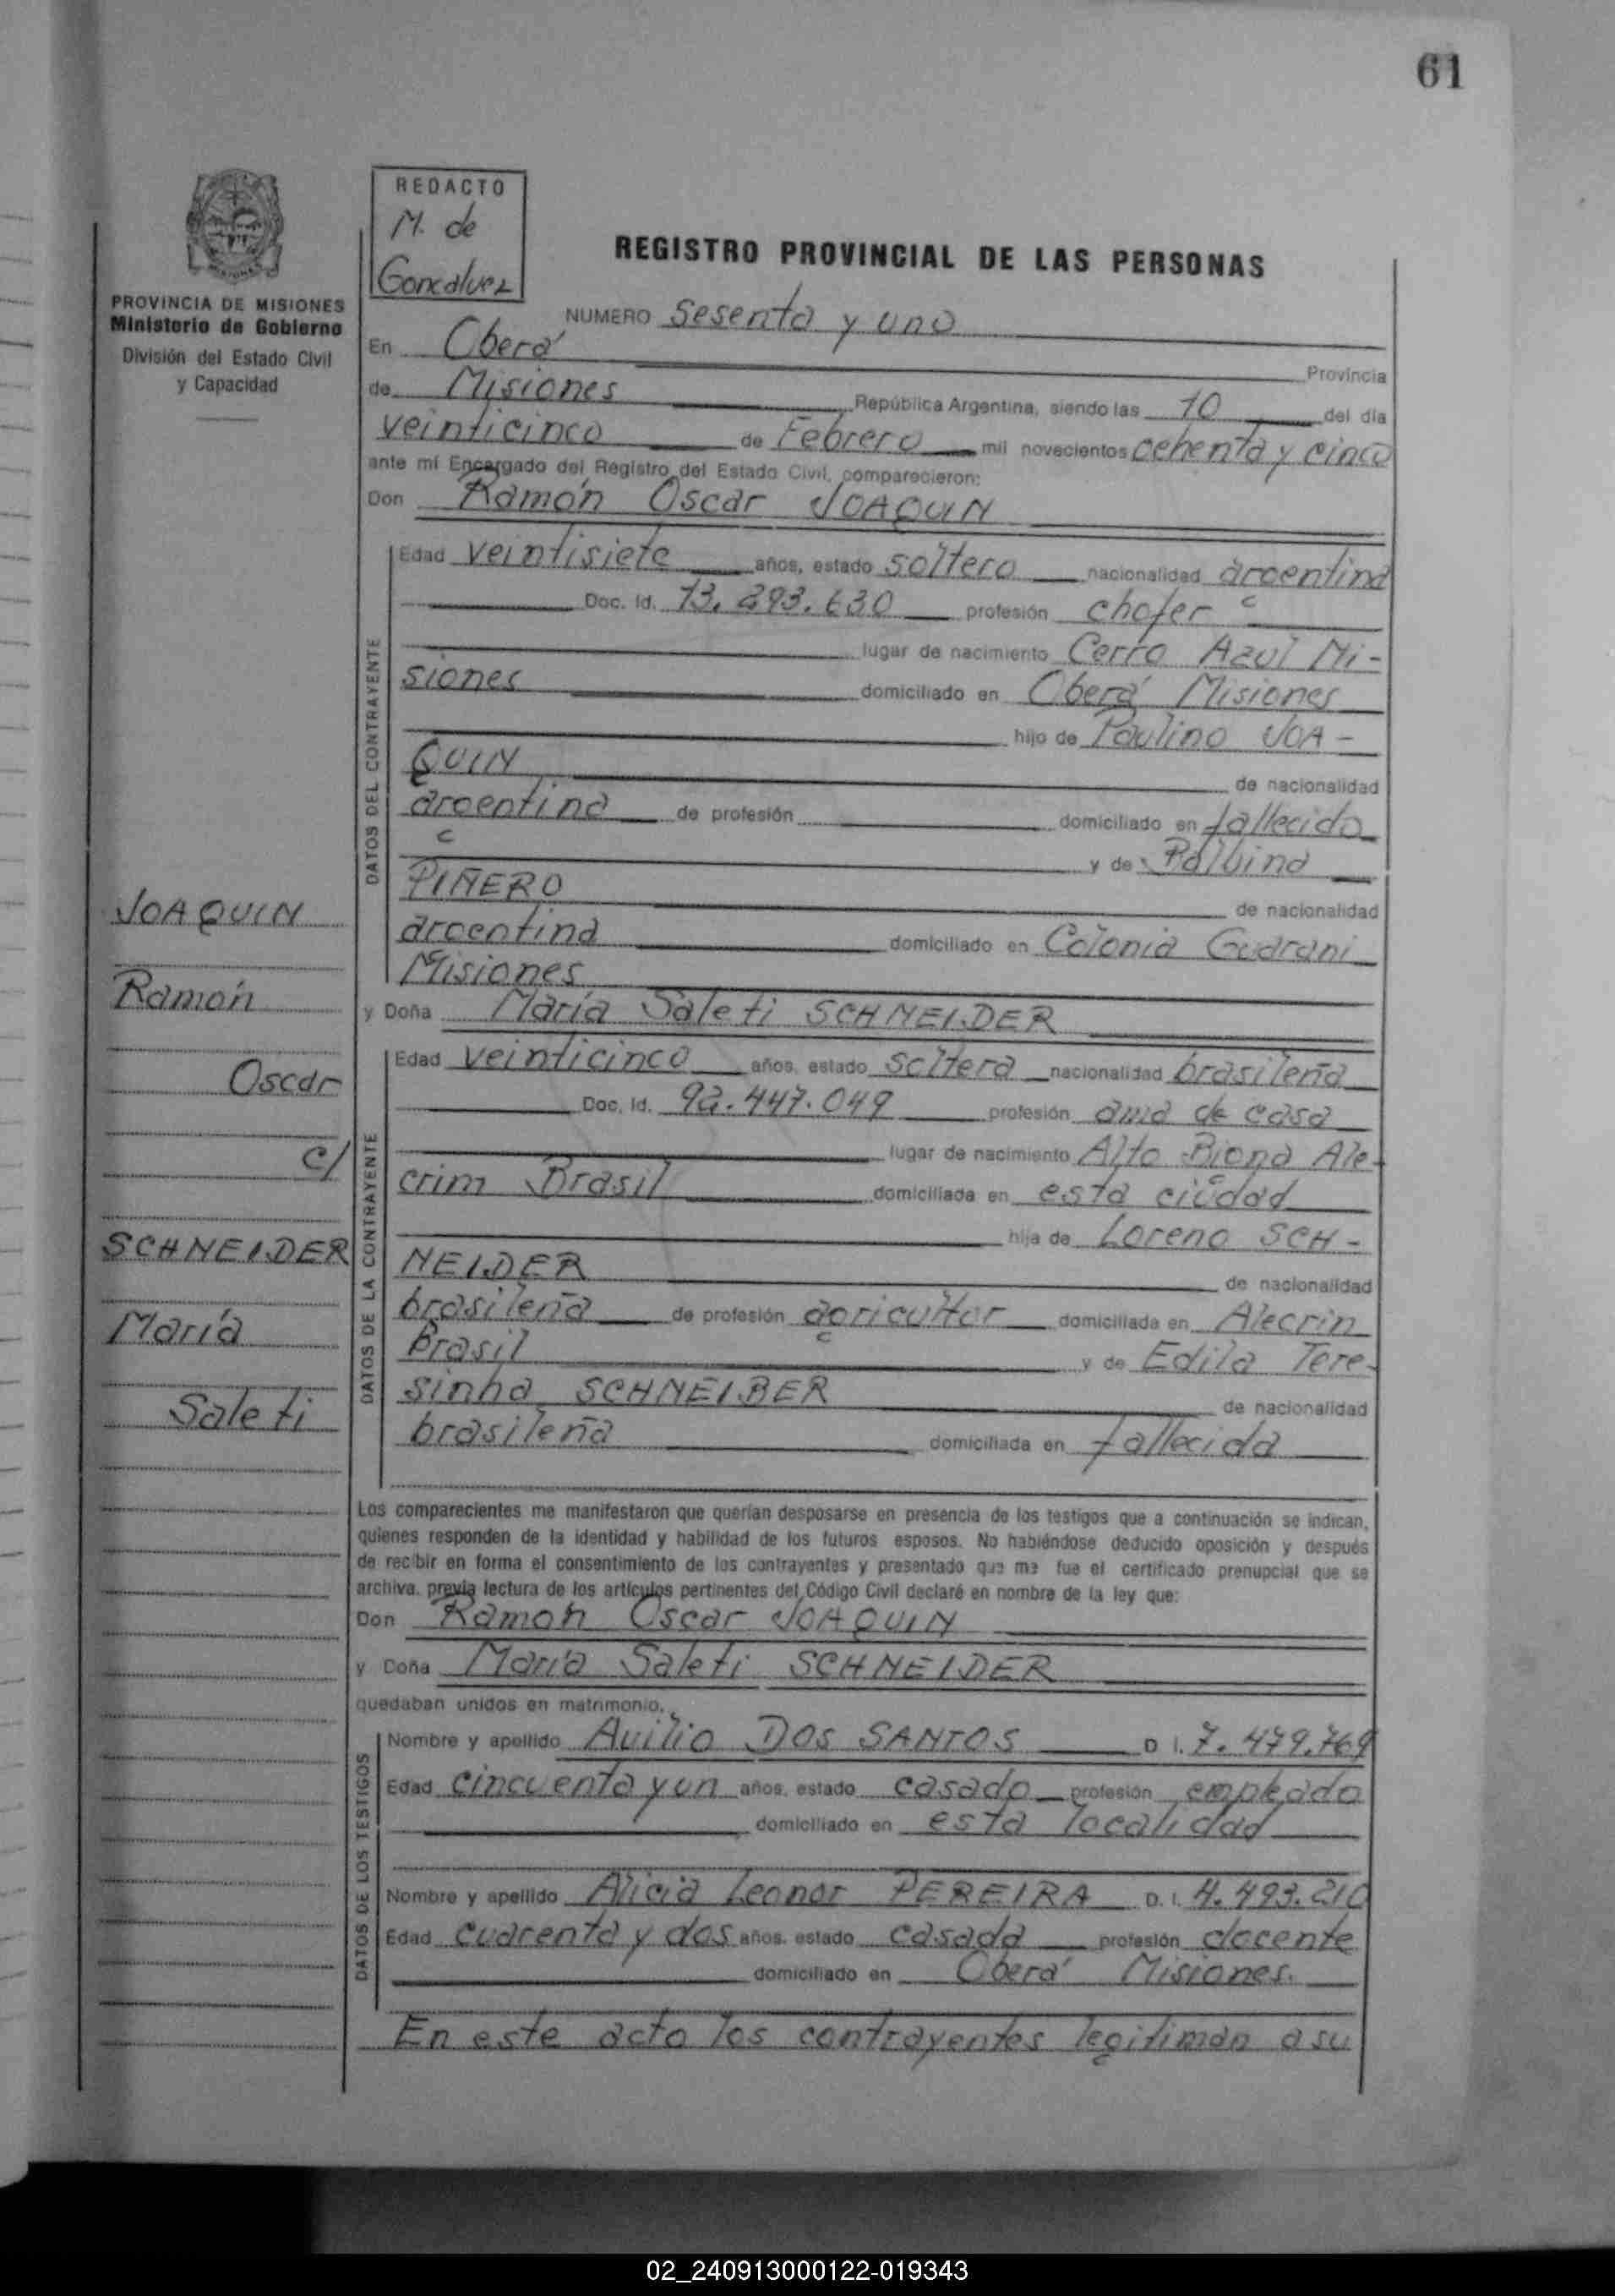 61
REDACTO
M. de
Goncalvez
PROVINCIA DE MISIONES
Ministerio de Gobierno
División del Estado Civil
y Capacidad
REGISTRO PROVINCIAL DE LAS PERSONAS
NUMERO Sesenta y uno
En Oberá Provincia
de Misiones República Argentina, siendo las 10 del día
veinticinco de Febrero mil novecientos ochenta y cinco
ante mí Encargado del Registro del Estado Civil, comparecieron:
Don Ramón Oscar JOAQUIN
DATOS DEL CONTRAYENTE
Edad veintisiete años, estado soltero nacionalidad argentina
Doc. Id. 13.293.630 profesión chofer
lugar de nacimiento Cerro Azul Mi-
siones domiciliado en Oberá Misiones
hijo de Paulino JOA-
QUIN de nacionalidad
argentina de profesión domiciliado en fallecido
y de Balbina
PIÑERO de nacionalidad
argentina domiciliado en Colonia Guarani
Misiones
y Doña María Saleti SCHNEIDER
DATOS DE LA CONTRAYENTE
Edad veinticinco años, estado soltera nacionalidad brasileña
Doc. Id. 92.447.049 profesión ama de casa
lugar de nacimiento Alto Ale-
crim Brasil domiciliada en esta ciudad
hija de Loreno SCH-
NEIDER de nacionalidad
brasileña de profesión agricultor domiciliada en Alecrin
Brasil y de Edila Tere-
sinha SCHNEIBER de nacionalidad
brasileña domiciliada en fallecida
JOAQUIN
Ramón
Oscar
c/
SCHNEIDER
María
Saleti
Los comparecientes me manifestaron que querían desposarse en presencia de los testigos que a continuación se indican,
quienes responden de la identidad y habilidad de los futuros esposos. No habiéndose deducido oposición y después
de recibir en forma el consentimiento de los contrayentes y presentado que me fue el certificado prenupcial que se
archiva, previa lectura de los artículos pertinentes del Código Civil declaré en nombre de la ley que:
Don Ramón Oscar JOAQUIN
y Doña María Saleti SCHNEIDER
quedaban unidos en matrimonio.
DATOS DE LOS TESTIGOS
Nombre y apellido Auilio DOS SANTOS D I. 7.479.769
Edad cincuenta y un años, estado casado profesión empleado
domiciliado en esta localidad
Nombre y apellido Alicia Leonor PEREIRA D. I. 4.493.210
Edad cuarenta y dos años, estado casada profesión docente
domiciliado en Oberá Misiones.
En este acto los contrayentes legitiman a su
02_240913000122-019343